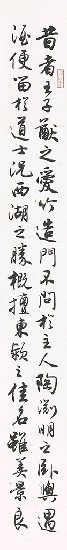 昔者王子猷之愛竹造門不問於主人陶淵明之臥輿遇
酒便留於道士況西湖之勝概擅東潁之佳名雖美景良